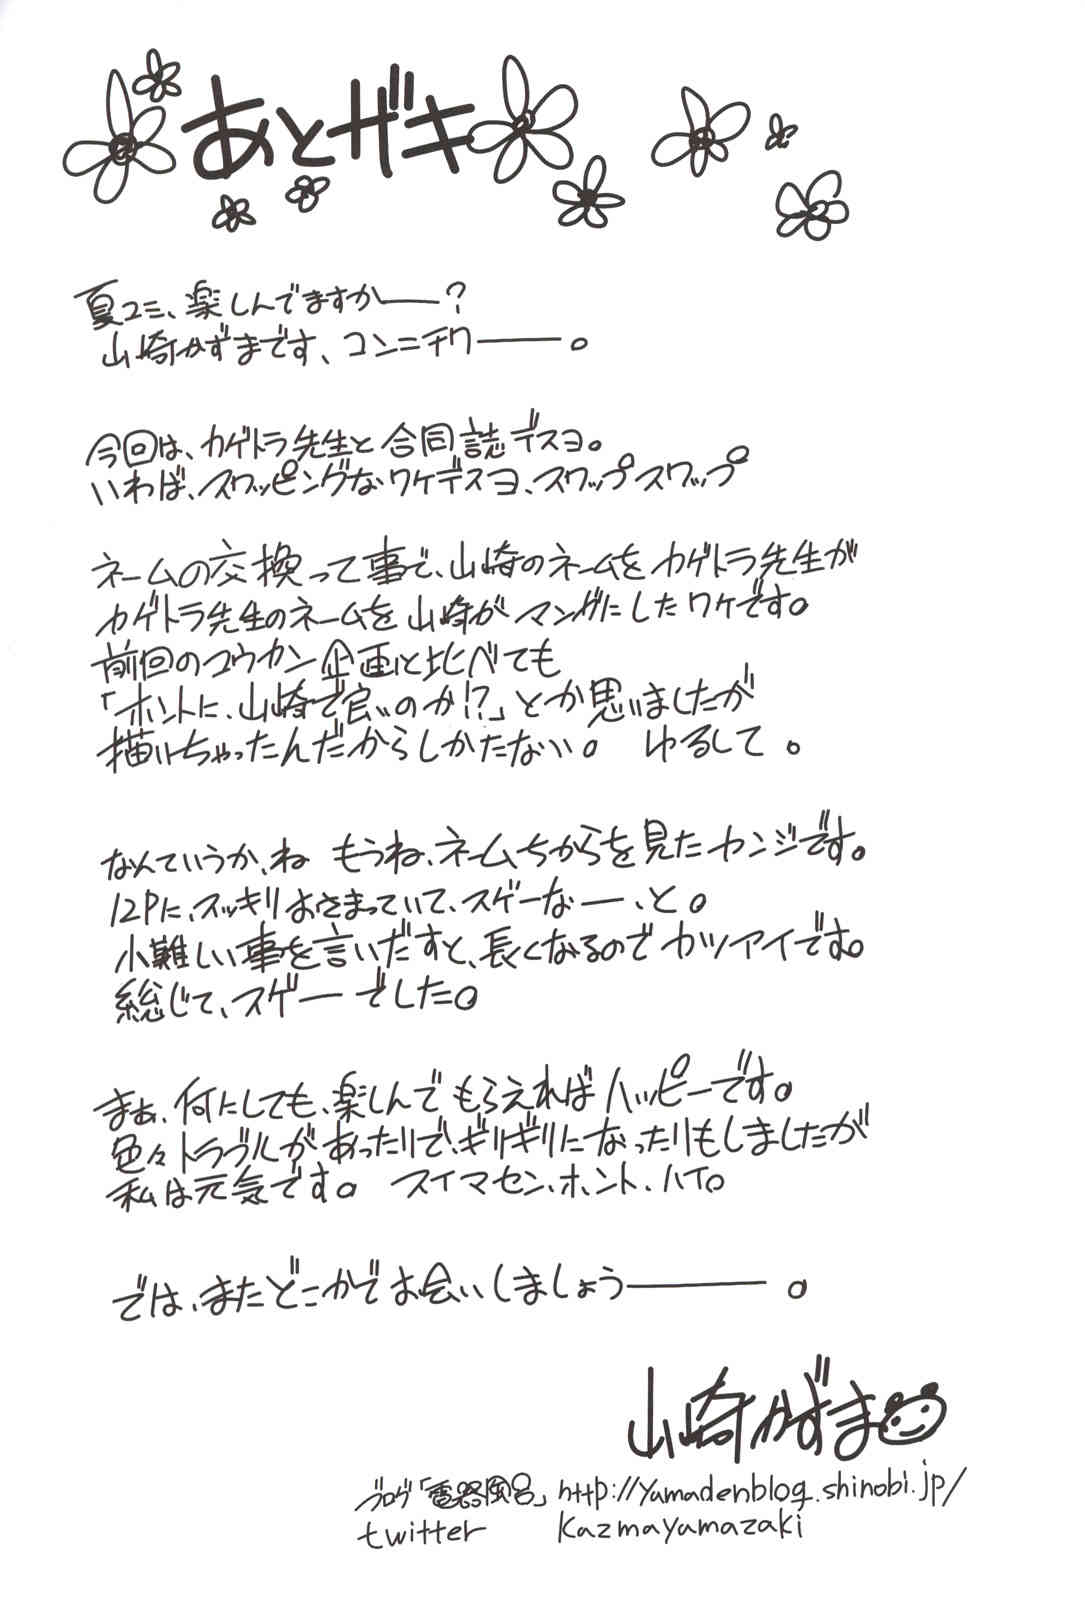 あとザキ
夏コミ、楽しんでますかー?
山崎かずまです、コンニチワー。
今回は、カゲトラ先生と合同誌デスヨ。
いわば、スワッピングなワケデスヨ、スワップスワップ
ネームの交換って事で、山崎のネームをカゲトラ先生が
カゲトラ先生のネームを山崎がマンガにしたワケです。
前回のコウカン企画と比べても
「ホントに、山崎で良いのか!?」とか思いましたが
描いちゃったんだからしかたない。 ゆるして。
なんていうか、ね もうね、ネームぢからを見たカンジです。
12Pに、スッキリおさまっていて、スゲーなー、と。
小難しい事を言いだすと、長くなるのでカツアイです。
総じて、スゲーでした。
まぁ、何にしても、楽しんでもらえればハッピーです。
色々トラブルがあったりで、ギリギリになったりもしましたが
私は元気です。 スイマセン、ホント、ハイ。
では、またどこかでお会いしましょうー。
山崎かずま
ブログ「電器風呂」 http://yamadenblog.shinobi.jp/
twitter kazmayamazaki